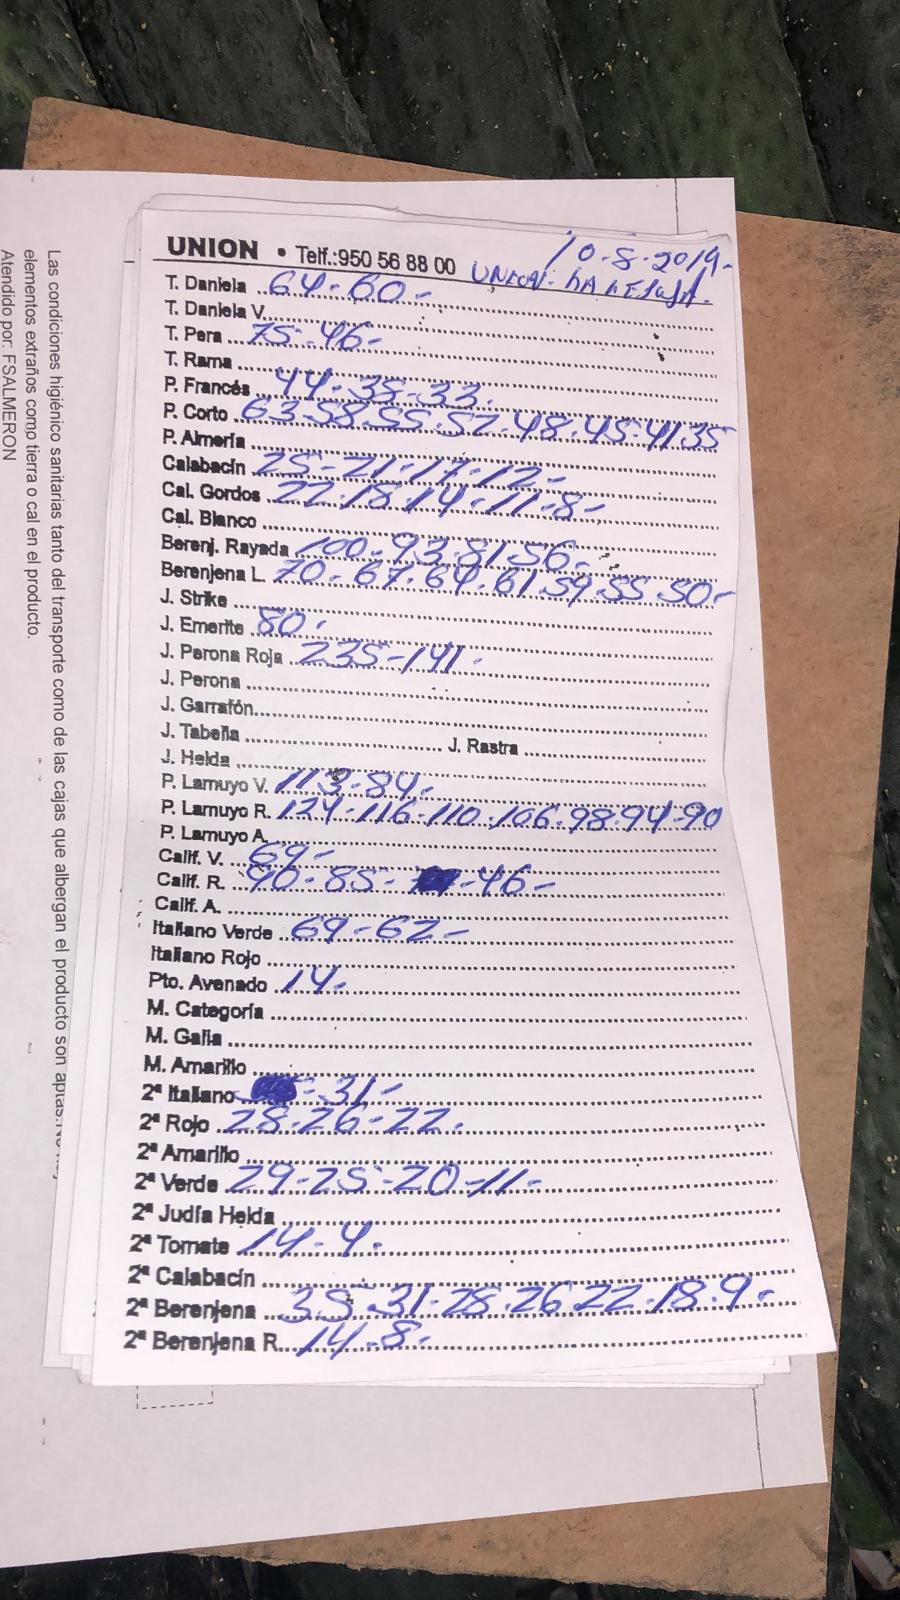 UNION • Telf.:950 56 88 00 10-8-2019-
UNION- LA REDONDA.
T. Daniela 64-60-
T. Daniela V.
T. Pera 75-46-
T. Rama
P. Francés 44-38-33.
P. Corto 63-58.55.52-48-45-41.35
P. Almería
Calabacín 25-21-17-12-
Cal. Gordos 22-18.14-11-8-
Cal. Blanco
Berenj. Rayada 100-93.81.56-
Berenjena L. 70-67.64.61.59.55.50-
J. Strike
J. Emerite 80.
J. Perona Roja 235-141.
J. Perona
J. Garrafón
J. Tabella J. Rastra
J. Helda
P. Lamuyo V. 113-84-
P. Lamuyo R. 124-116-110.106-98-94-90
P. Lamuyo A.
Calif. V. 69-
Calif. R. 90-85- -46-
Calif. A.
Italiano Verde 69-62-
Italiano Rojo
Pto. Avenado 14.
M. Categoría
M. Galia
M. Amarillo
2ª Italiano -31-
2ª Rojo 28-26-22.
2ª Amarillo
2ª Verde 29-25-20-11-
2ª Judía Helda
2ª Tomate 14-4.
2ª Calabacín
2ª Berenjena 35.31-28.26.22-18.9-
2ª Berenjena R. 14-8-
Las condiciones higiénico sanitarias tanto del transporte como de las cajas que albergan el producto son aptas.No hay
elementos extraños como tierra o cal en el producto.
Atendido por: FSALMERON